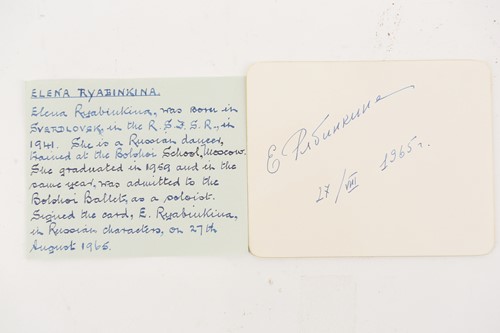 ELENA RYABINKINA.
Elena Ryabinkina, was born in
SVERDLOVSK, in the R.S.F.S.R., in
1941. She is a Russian dancer,
trained at the Bolshoi School, Moscow.
She graduated in 1959 and in the
same year, was admitted to the
Bolshoi Ballet, as a soloist.
Signed the card, E. Ryabinkina,
in Russian characters, on 27th
August 1965.
Е Рябинкина
27/VIII 1965 г.